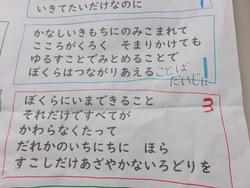 いきてたいだけなのに
かなしいきもちにのみこまれて
こころがくろく　そまりかけても
ゆるすことでみとめることで
ぼくらはつながりあえる
ことば
だいじに
ぼくらにいまできること
3
それだけですべてが
かわらなくたって
だれかのいちにちに　ほら
すこしだけあざやかないろどりを